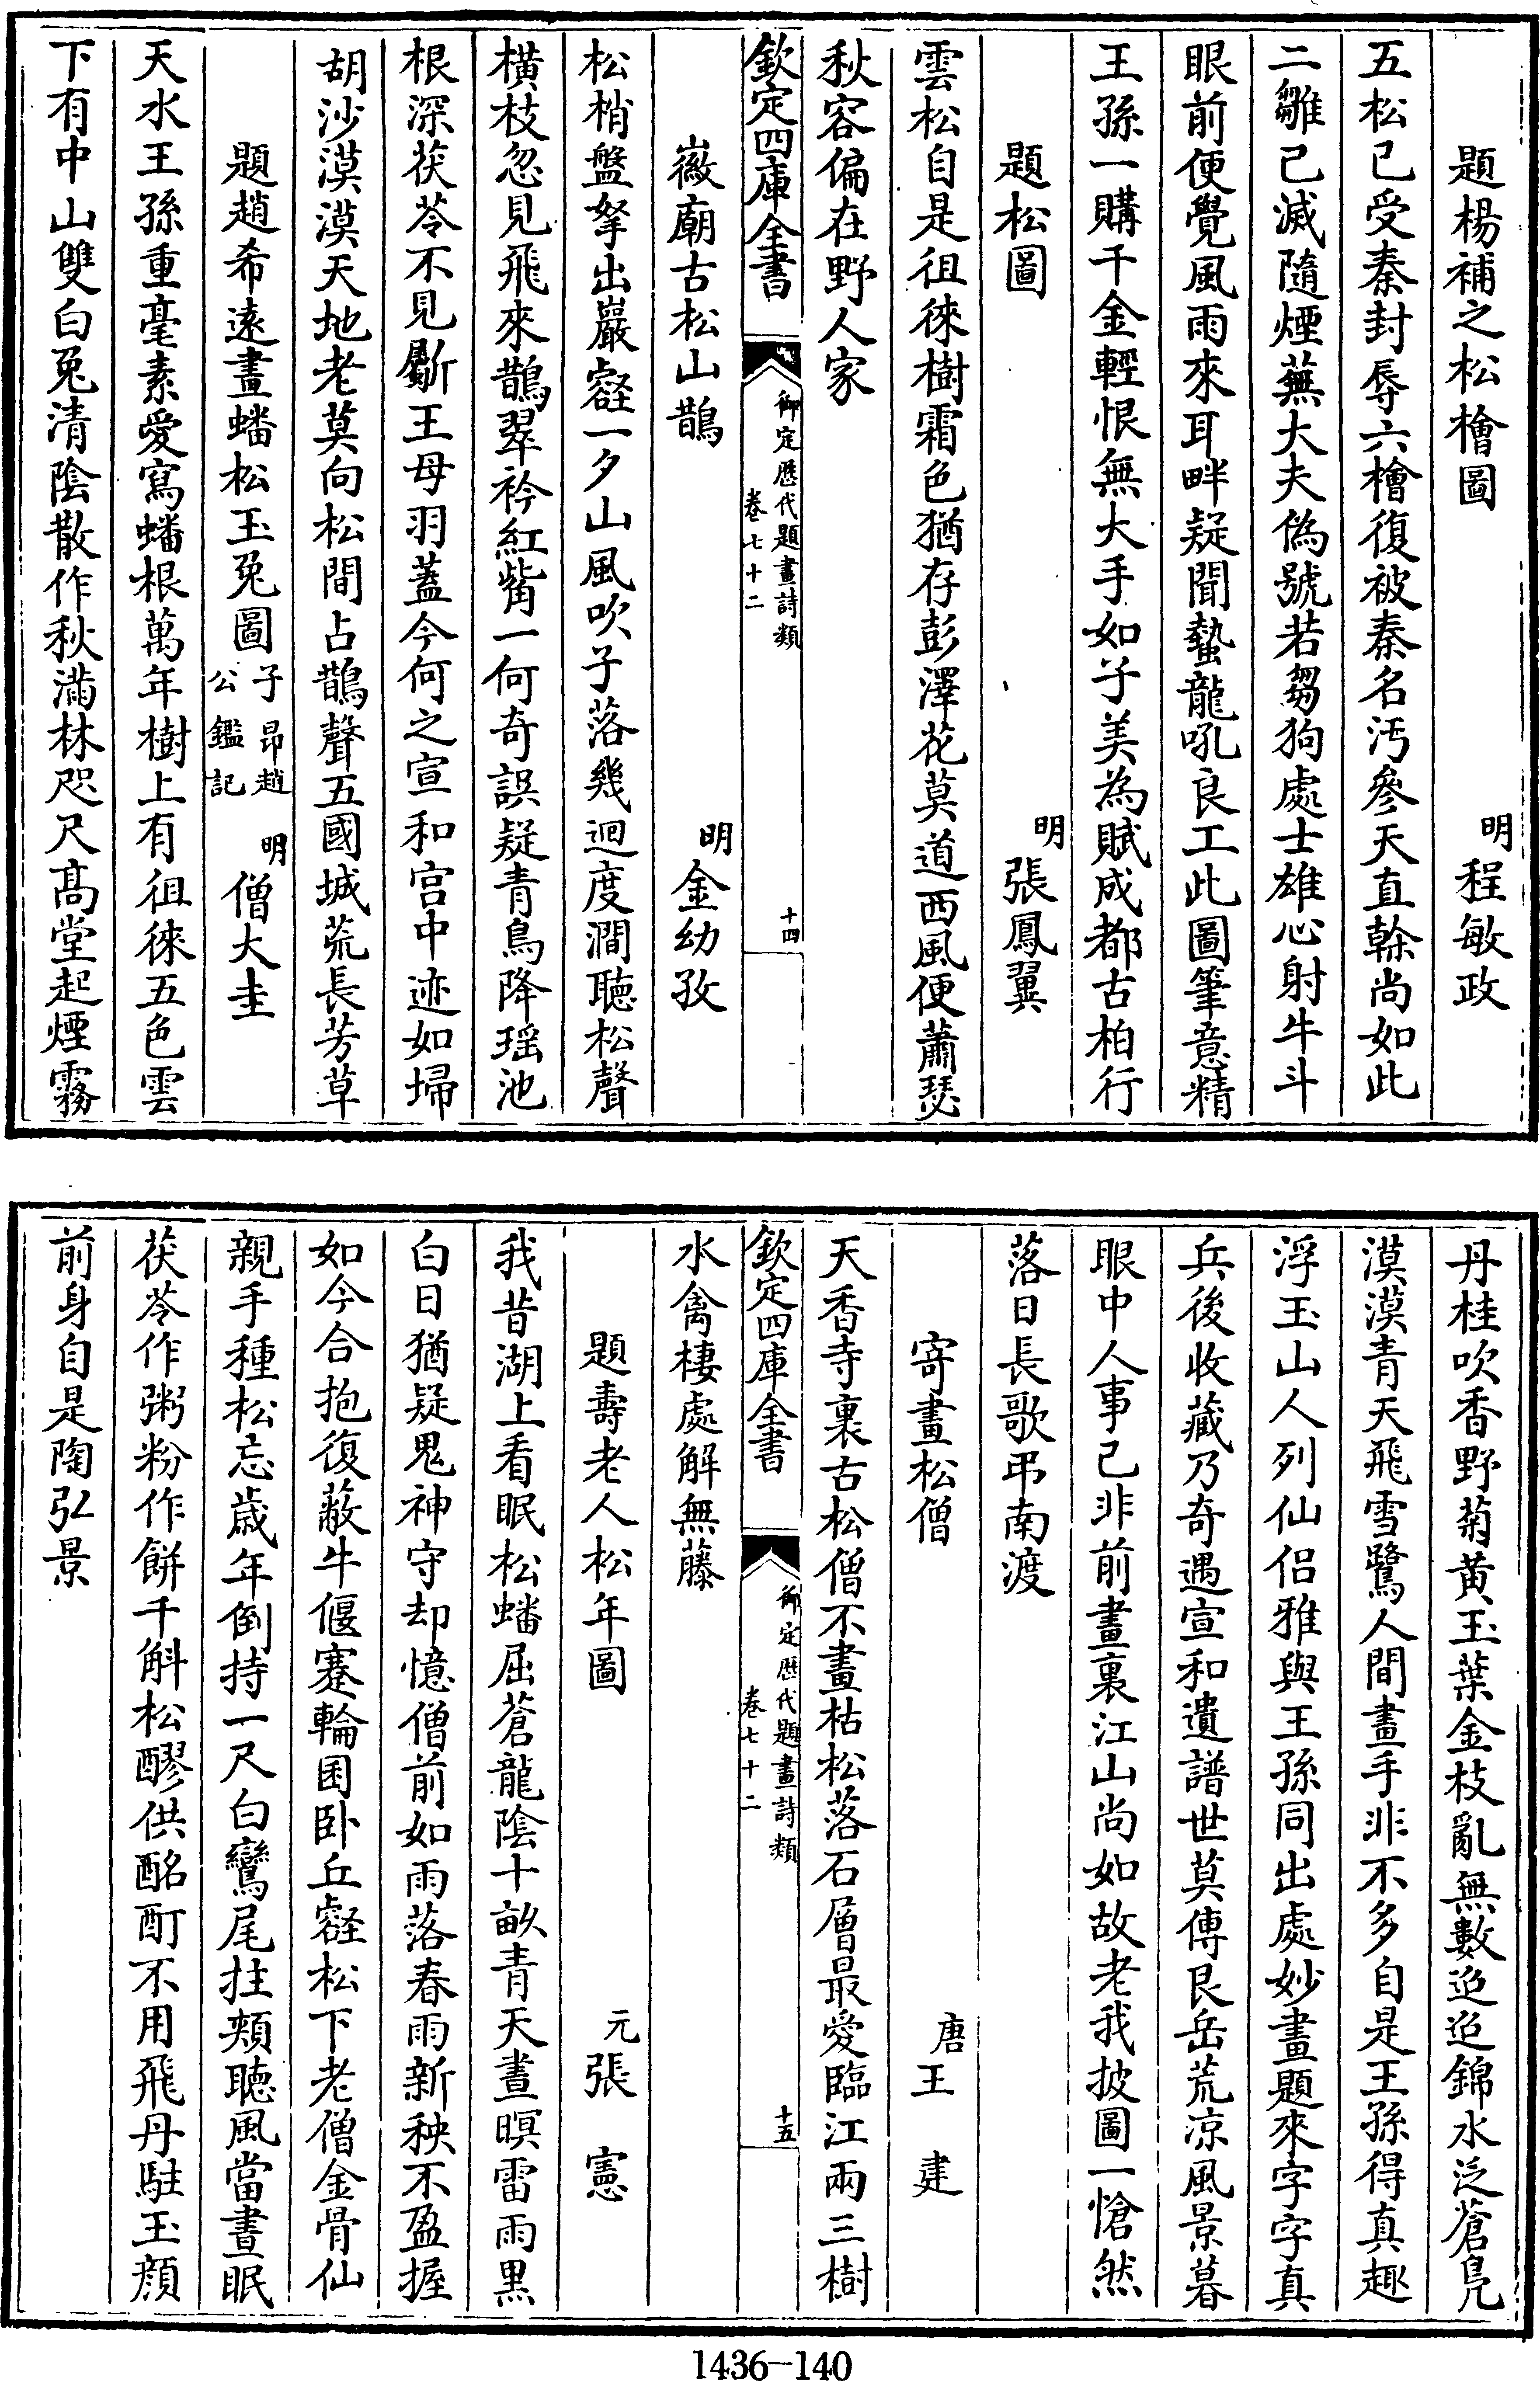 題楊補之松檜圖　明程敏政
五松已受秦封辱六檜復被秦名汚參天直榦尚如此
二雛已滅隨煙蕪大夫偽號若芻狗處士雄心射牛斗
眼前便覺風雨來耳畔疑聞蟄龍吼良工此圖筆意精
王孫一購千金輕恨無大手如子美為賦成都古柏行
題松圖　明張鳳翼
雲松自是徂徠樹霜色猶存彭澤花莫道西風便蕭瑟
秋容偏在野人家
欽定四庫全書　御定歷代題畫詩類　卷七十二　十四
徽廟古松山鵲　明金幼孜
松梢盤拏出巖壑一夕山風吹子落幾迴度澗聽松聲
橫枝忽見飛來鵲翠衿紅觜一何奇誤疑青鳥降瑶池
根深茯苓不見斸王母羽蓋今何之宣和宫中迹如埽
胡沙漠漠天地老莫向松間占鵲聲五國城荒長芳草
題趙希遠畫蟠松玉兔圖子昂趙公鑑記　明僧大圭
天水王孫重毫素愛寫蟠根萬年樹上有徂徠五色雲
下有中山雙白兔清陰散作秋滿林咫尺髙堂起煙霧
丹桂吹香野菊黄玉葉金枝亂無數迢迢錦水泛蒼鳧
漠漠青天飛雪鷺人間畫手非不多自是王孫得真趣
浮玉山人列仙侣雅與王孫同出處妙畫題來字字真
兵後收藏乃奇遇宣和遺譜世莫傳艮岳荒凉風景暮
眼中人事已非前畫裏江山尚如故老我披圖一愴然
落日長歌弔南渡
寄畫松僧　唐王建
天香寺裏古松僧不畫枯松落石層最愛臨江兩三樹
欽定四庫全書　御定歷代題畫詩類　卷七十二　十五
水禽棲處解無藤
題壽老人松年圖　元張憲
我昔湖上看眠松蟠屈蒼龍陰十畝青天晝暝雷雨黑
白日猶疑鬼神守却憶僧前如雨落春雨新秧不盈握
如今合抱復蔽牛偃蹇輪囷卧丘壑松下老僧金骨仙
親手種松忘歳年倒持一尺白鸞尾拄頰聽風當晝眠
茯苓作粥粉作餅千斛松醪供酩酊不用飛丹駐玉顔
前身自是陶弘景
1436—140